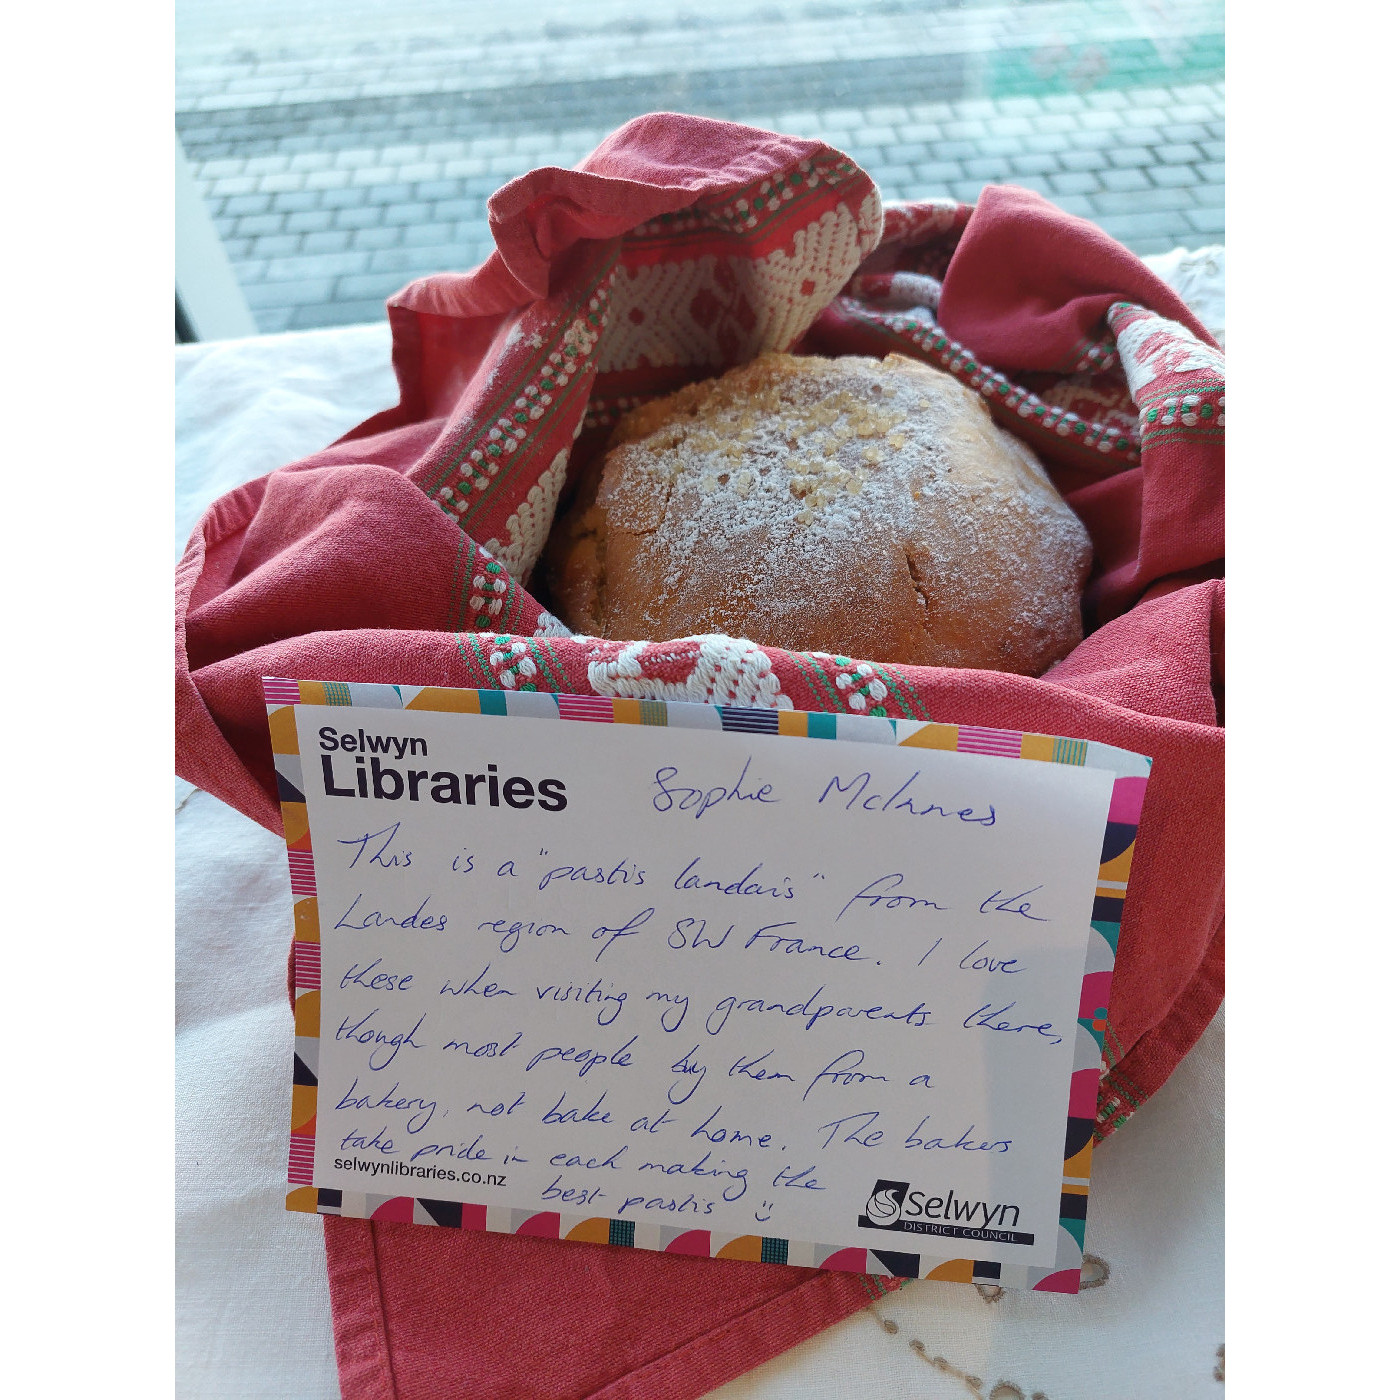 Selwyn
Libraries
Sophie McInnes
This is a "pastis landais" from the
Landes region of SW France. I love
these when visiting my grandparents there,
though most people buy them from a
bakery, not bake at home. The bakers
take pride in each making the
best pastis :)
selwynlibraries.co.nz
Selwyn
DISTRICT COUNCIL